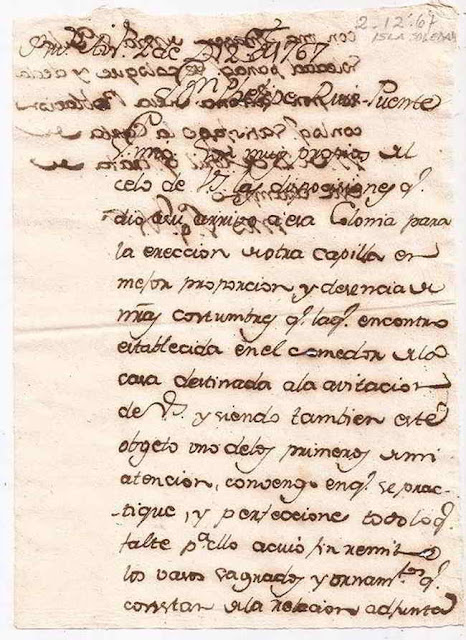 2-12-67
ISLA SOLEDAD
2 de D.re 1767
Sr. Dn Phelipe Ruiz-Puente
Son muy propias del
celo de V. las disposiciones q.e
dio a su arrivo a esa Colonia para
la ereccion de otra capilla en
mejor proporcion y desencia de
ntras costumbres q.e la q.e encontro
establecida en el comedor de la
casa destinada a la avitacion
de V. y siendo tambien este
objeto uno de los primeros de mi
atencion, convengo en q.e se prac-
tique, y perfeccione todo lo q.e
falte p.a ello a cuio fin remito
los vasos sagrados y ornam.tos q.e
constan de la relacion adjunta